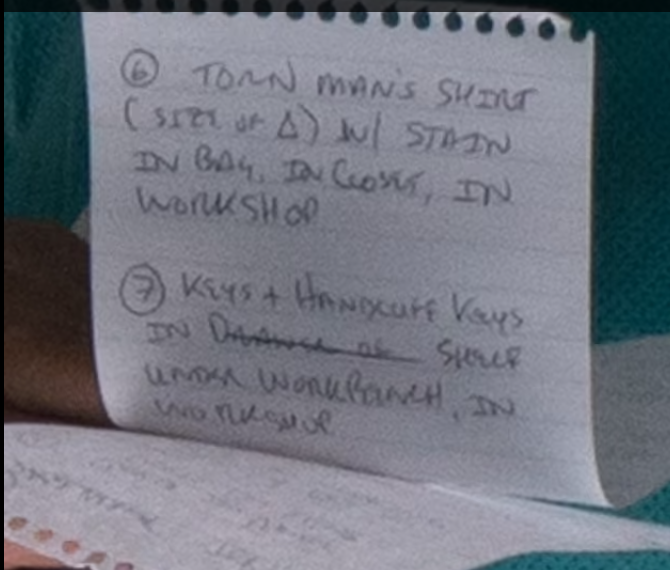 ⑥ TORN MAN'S SHIRT
(SIZE OF Δ) W/ STAIN
IN BAG, IN CLOSET, IN
WORKSHOP
⑦ KEYS + HANDCUFF KEYS
IN DRAWER OF SHELF
UNDER WORKBENCH, IN
WORKSHOP